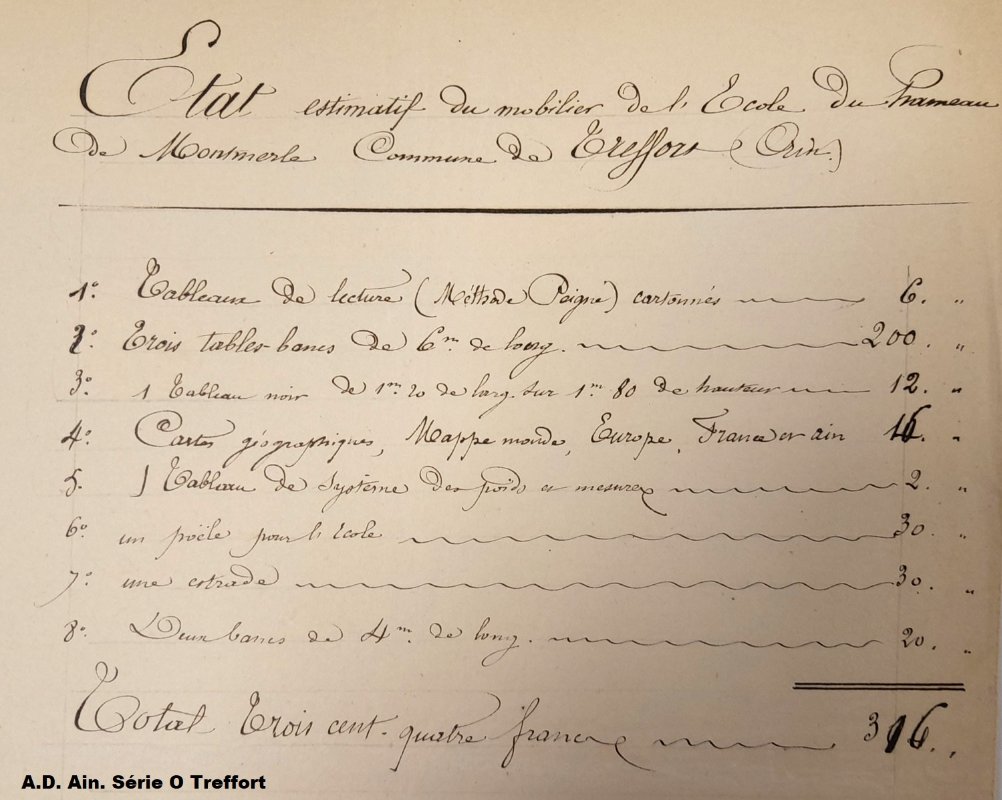 Etat estimatif du mobilier de l'Ecole du hameau
de Montmerle Commune de Treffort (Ain)
1° Tableaux de lecture (Méthode Peigné) cartonnés 6. "
2° Trois tables-bancs de 6m de long. 200. "
3° 1 Tableau noir de 1m 20 de larg. sur 1m 80 de hauteur 12. "
4° Cartes géographiques, Mappe monde, Europe, France et ain 16. "
5. 1 Tableau de système des poids et mesures 2. "
6° un poële pour l'école 30. "
7° une estrade 30. "
8° Deux bancs de 4m de long. 20. "
Total Trois cent quatre francs 316. "
A.D. Ain. Série O Treffort